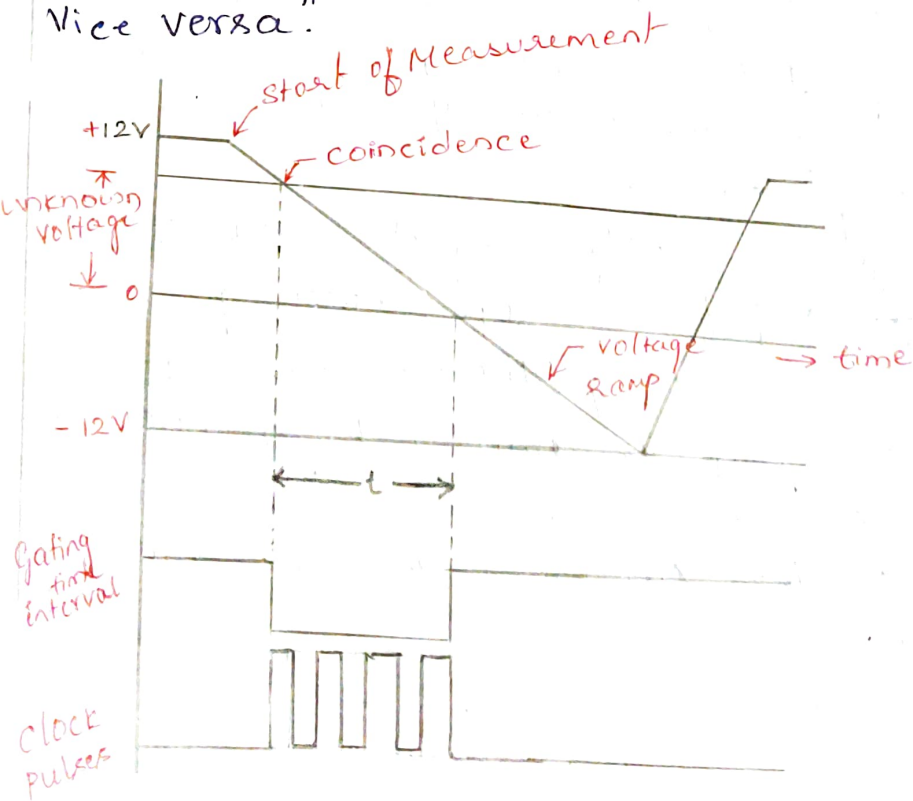 Vice versa."
start of Measurement
+12V
coincidence
unknown
voltage
0
voltage
ramp
time
-12V
t
Gating
time
interval
clock
pulses